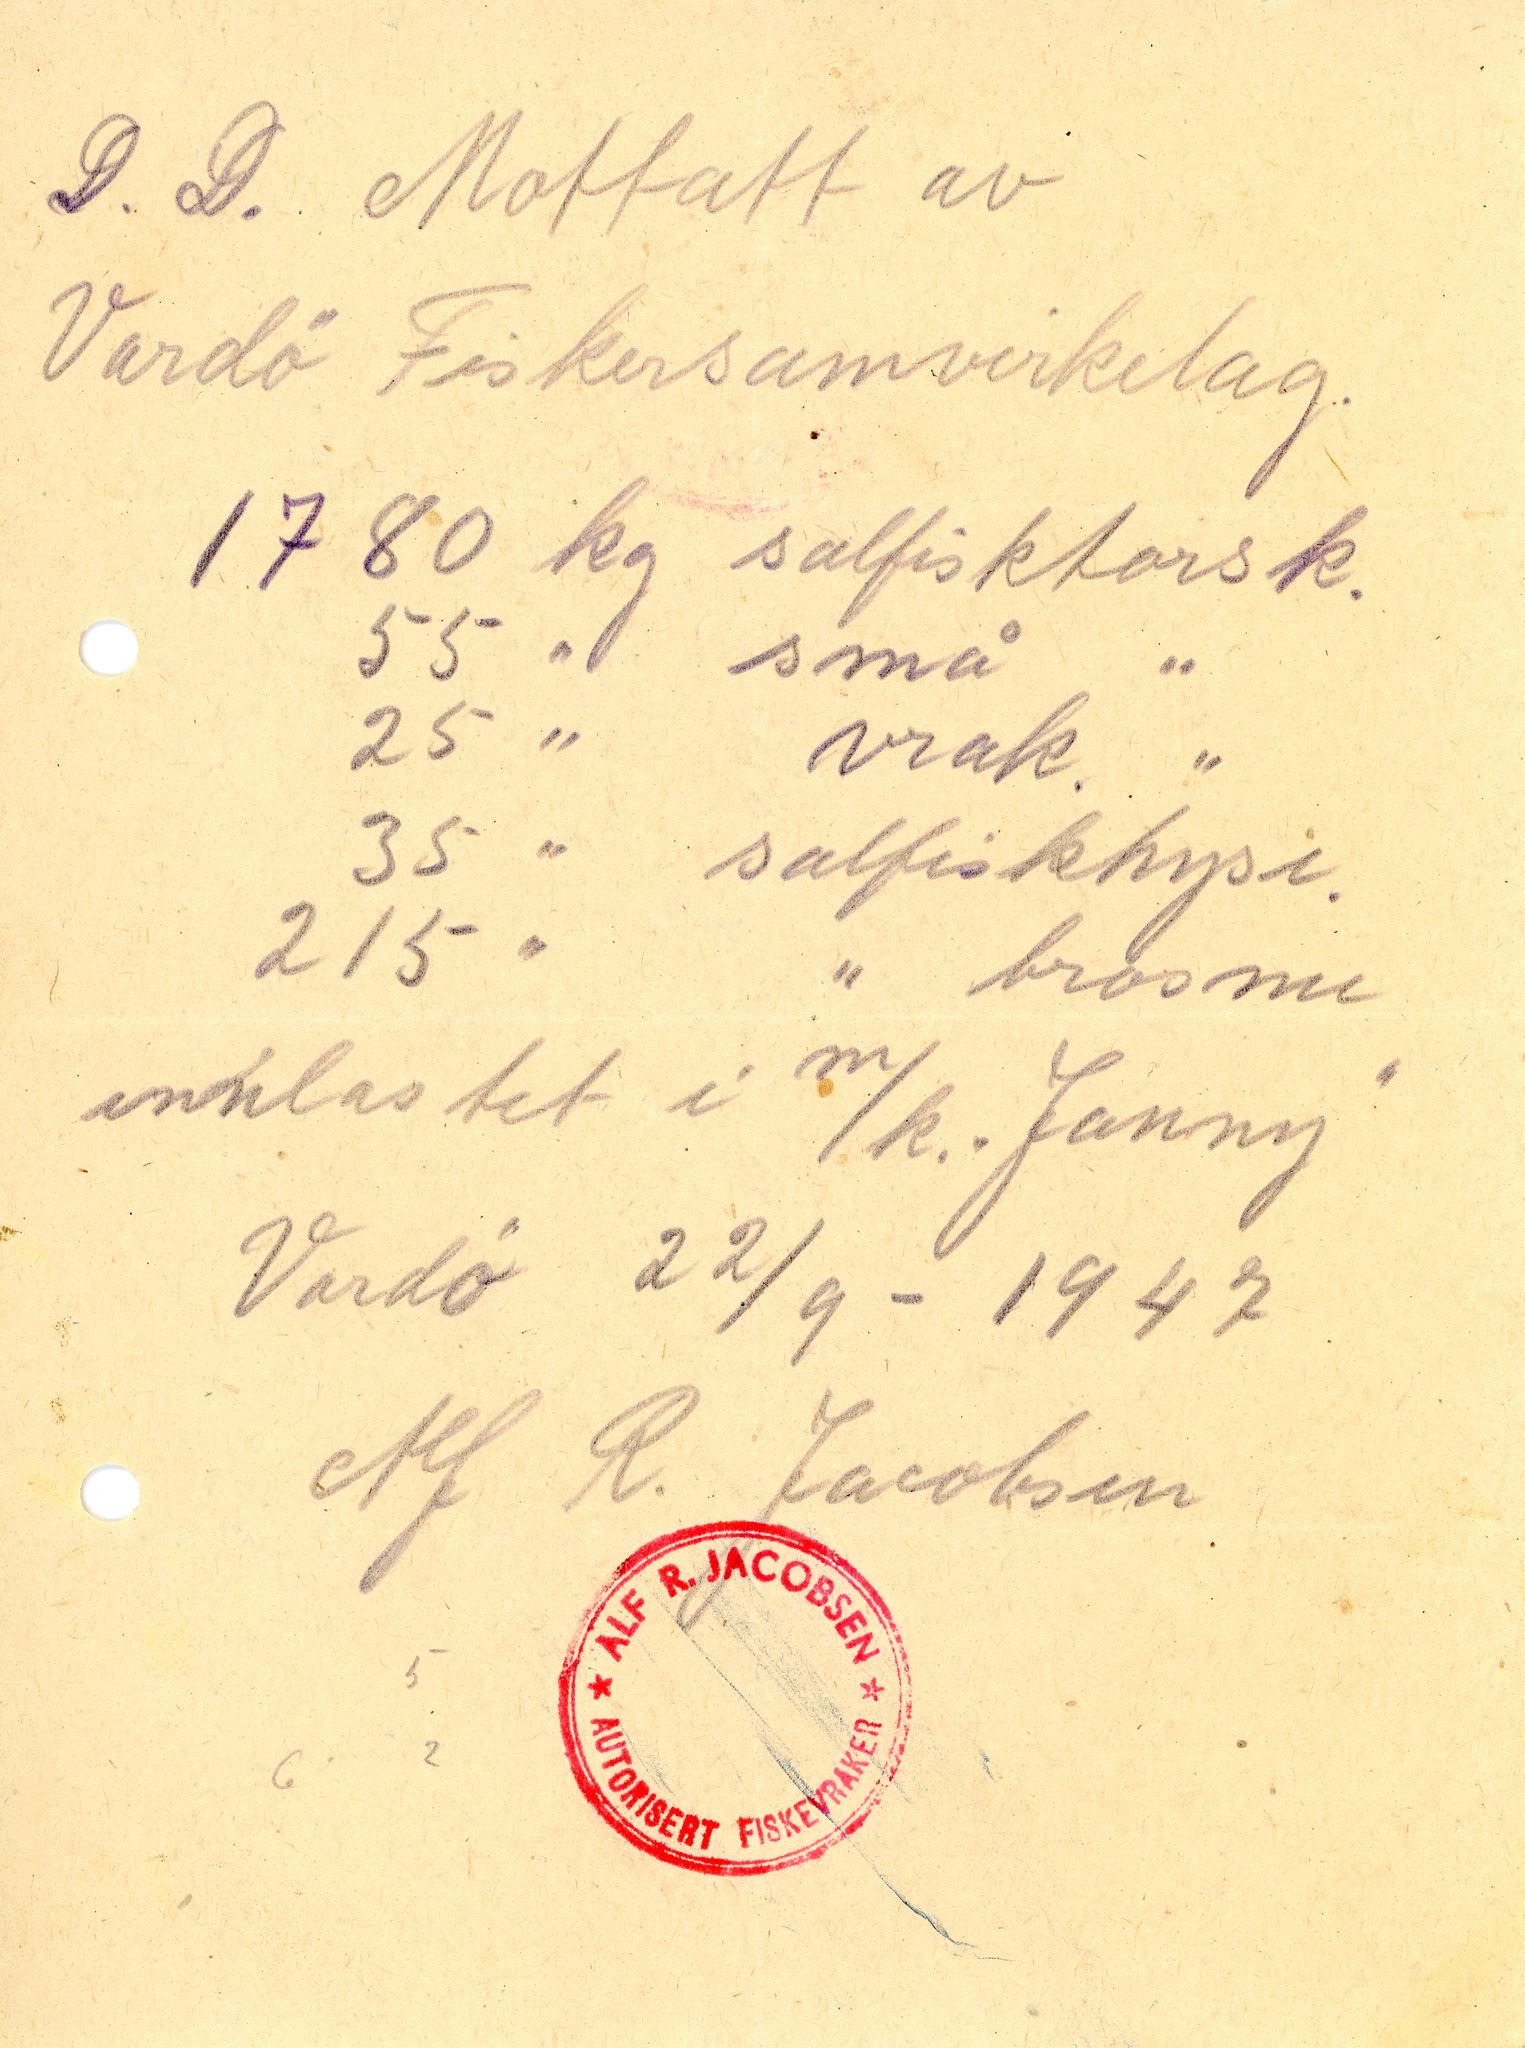 D. D. Mottatt av
Vardö Fiskersamvirkelag.
1780 kg salfisktorsk.
55 " små "
25 " vrak. "
35 " salfiskhyse.
215 " " brosme
innlastet i m/k. "Janny"
Vardö 22/9 - 1947
Alf R. Jacobsen
ALF R. JACOBSEN
AUTORISERT FISKEVRAKER
5
6 2